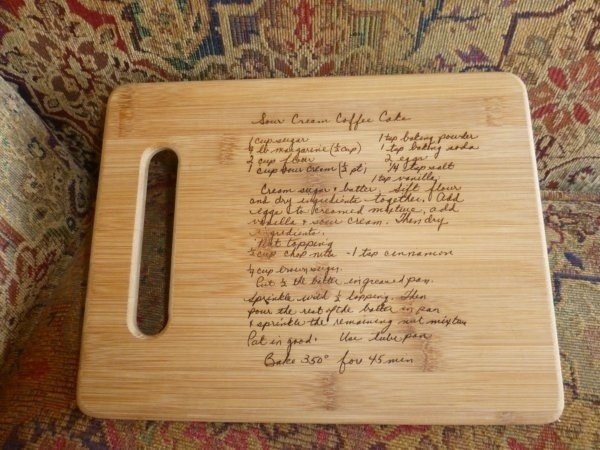 Sour Cream Coffee Cake
1 cup sugar 1 tsp baking powder
¼ lb. margarine (½ cup) 1 tsp baking soda
cup flour 2 eggs
1 cup sour cream (½ pt) ¼ tsp salt
1 tsp vanilla
Cream sugar + butter, sift flour
and dry ingredients together. Add
eggs to creamed mixture, add
vanilla + sour cream. Then dry
ingredients.
Nut topping
cup chop nuts - 1 tsp cinnamon
¼ cup brown sugar.
Put ½ the batter in greased pan.
Sprinkle with ½ topping. Then
pour the rest of the batter in pan
& sprinkle the remaining nut mixture
Pat in good. Use tube pan
Bake 350° for 45 min